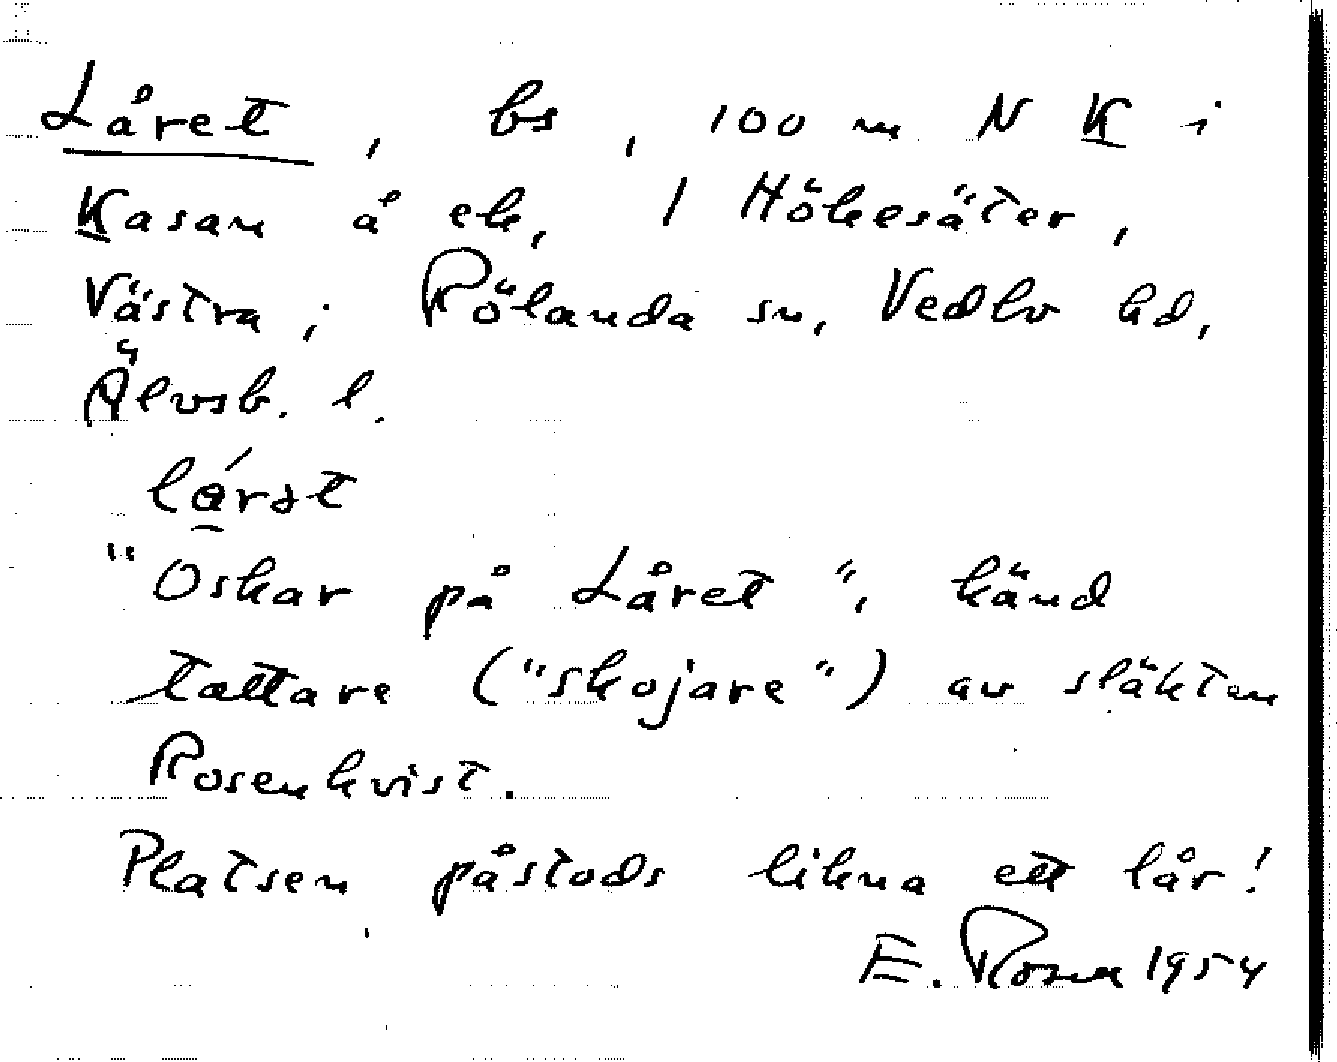 Låret, bs, 100 m N K i
Kasan å ek, 1 Hökesäter,
Västra; Rölanda sn, Vedbo hd,
Älvsb. l.
"Oskar på Låret", känd
tattare ("skojare") av släkten
Rosenkvist.
Platsen påstods likna ett lår!
E. 1954